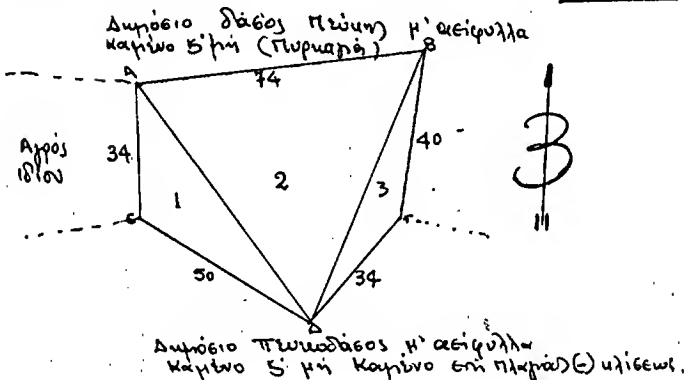 Δημόσιο δάσος πεύκης μ' αείφυλλα
καμένο ς' μή (Πυρκαγιά)
A
B
74
Αγρός
ιδίου
34
40
1
2
3
3
Ε
Γ
50
34
Δ
Δημόσιο πευκοδάσος μ' αείφυλλα
καμένο ς' μή καμένο επί πλαγιάς (-) κλίσεως.